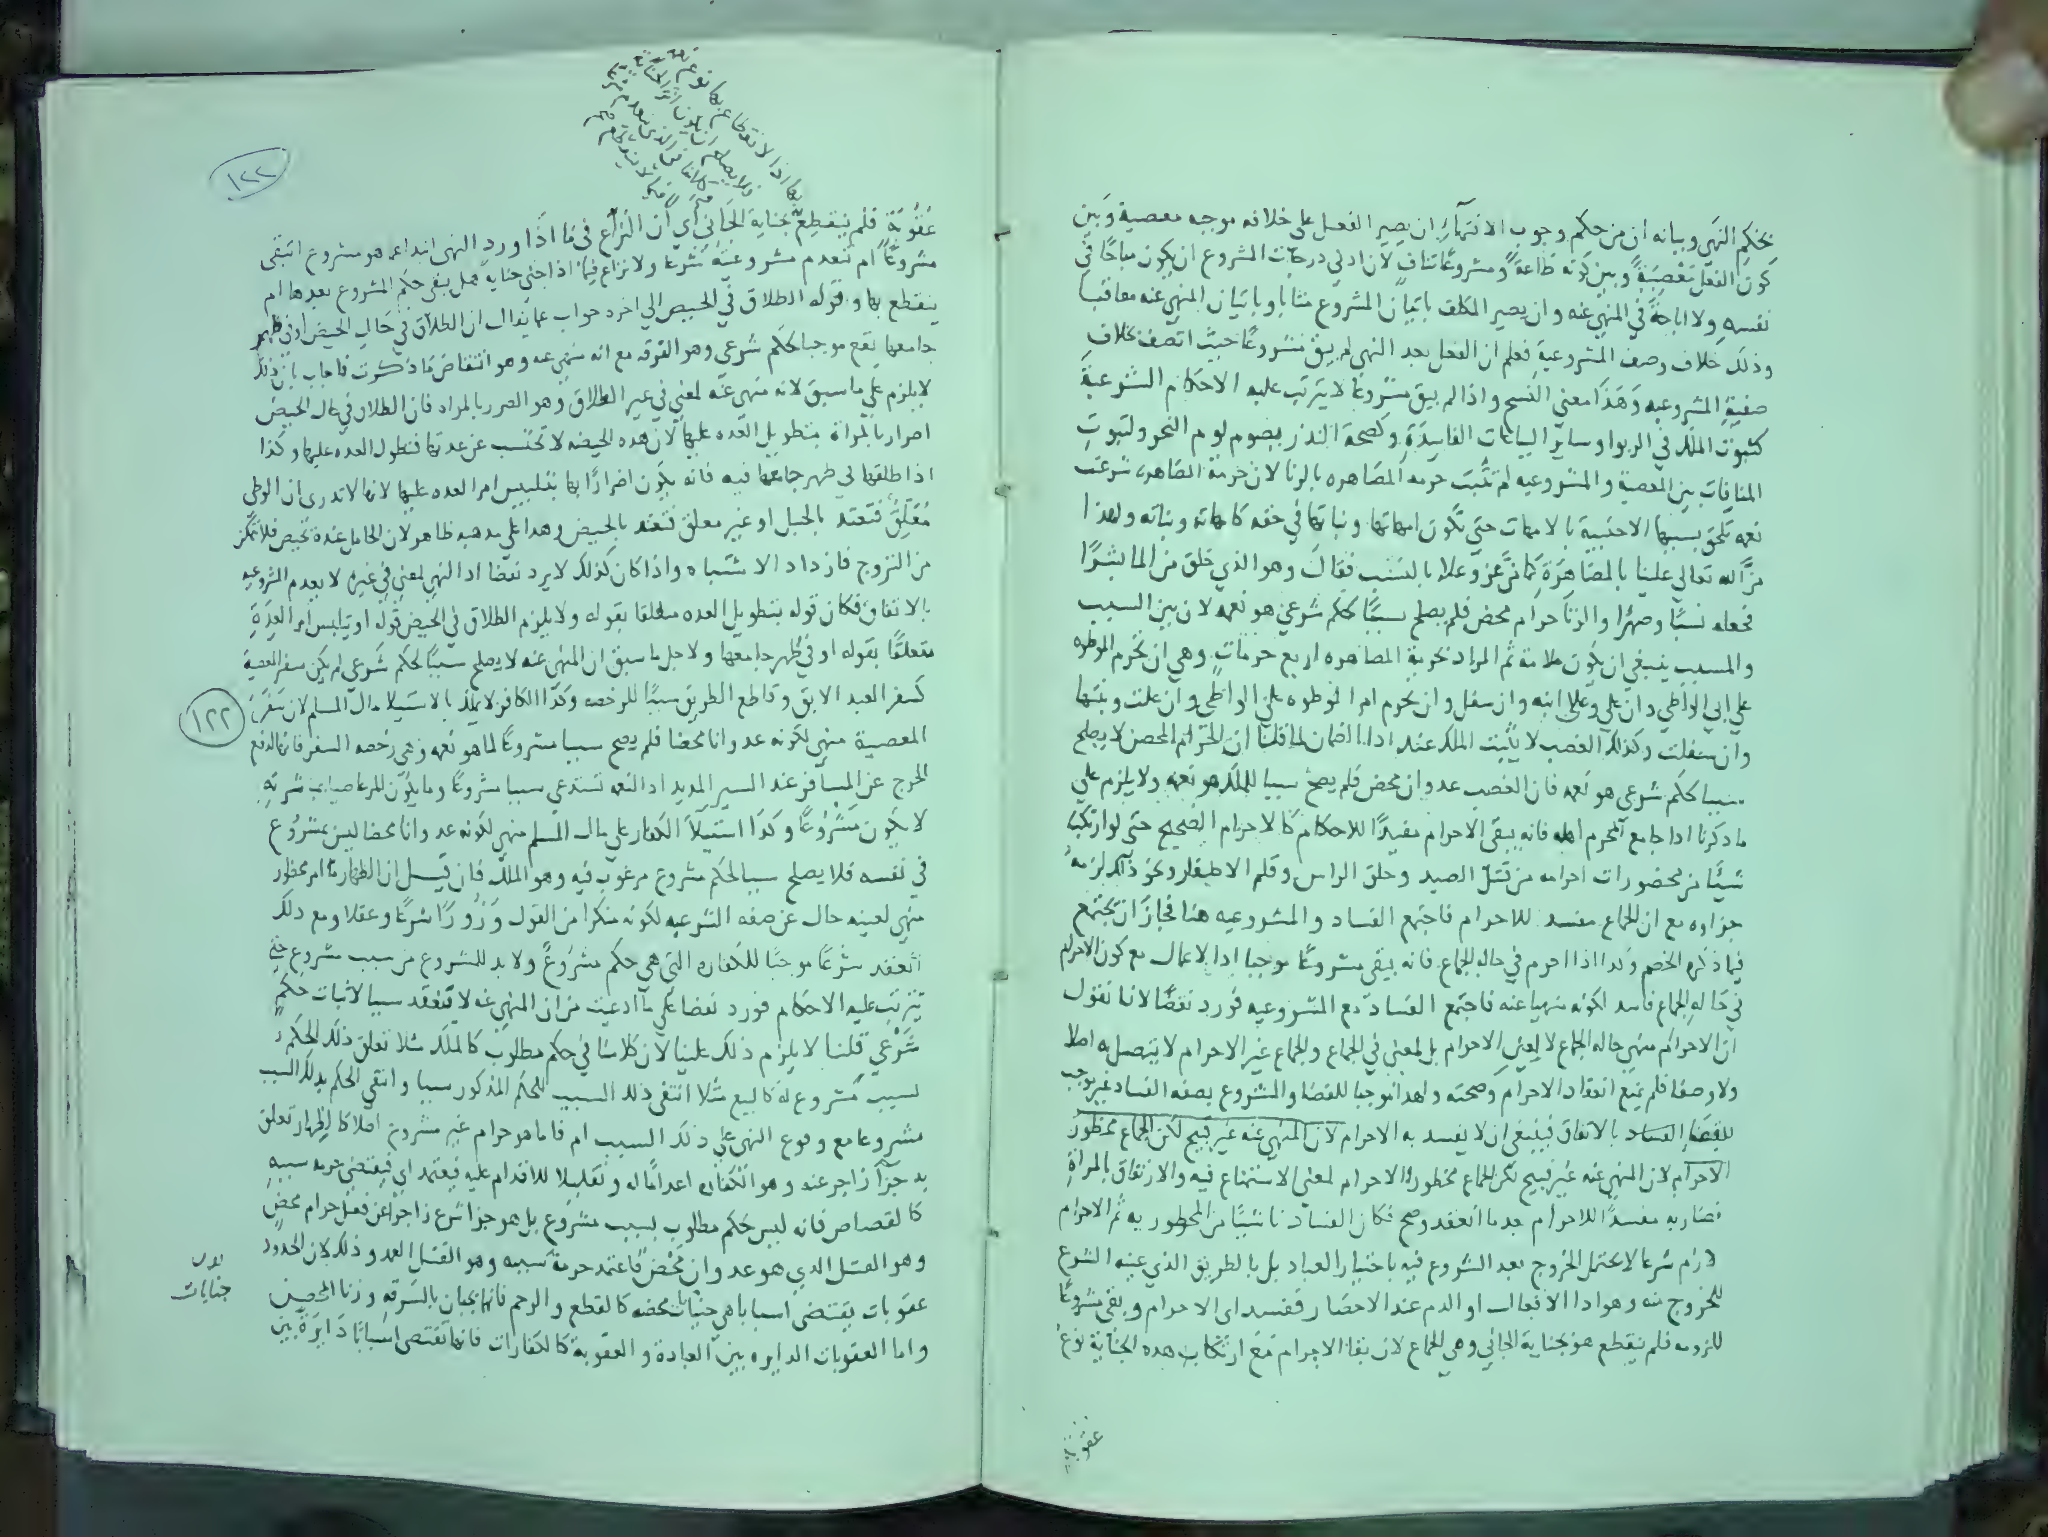 بحكم النهي وبيانه ان من حكم وجوب الانتهاء ان يصير الفعل على خلافه موجبه معصية وبين
كون الفعل معصية وبين كونه طاعة ومشروعا تناف لان ادنى درجات المشروع ان يكون مباحا في
نفسه ولا اباحة في المنهي عنه وان يصير المكلف باتيان المشروع مثابا وباتيان المنهي عنه معاقبا
وذلك خلاف وصف المشروعية فعلم ان الفعل بعد النهي لم يبق مشروعا حيث اتصف بخلاف
صفة المشروعيه وهذا معنى النسخ واذا لم يبق مشروعا لا يترتب عليه الاحكام الشرعية
كثبوت الملك في الربوا وساير البياعات الفاسدة وكصحة النذر بصوم يوم النحر ولثبوت
المنافات بين المعصية والمشروعيه لم تثبت حرمه المصاهره بالزنا لان حرمة المصاهره شرعت
نعمه تلحق بسببها الاجنبية بالامهات حتى تكون امهاتها وبناتها في حقه كامهاته وبناته ولهذا
من الله تعالى علينا بالمصاهرة كما من عز وعلا بالنسب فقال وهو الذي خلق من الما بشرا
فجعله نسبا وصهرا والزنا حرام محض فلم يصلح سببا لحكم شرعي هو نعمه لان بين السبب
والمسبب ينبغي ان يكون ملامة ثم المراد بحرمة المصاهره اربع حرمات وهي ان تحرم الموطوه
على ابي الواطي وان علي وعلى ابنه وان سفل وان تحرم ام الموطوه على الواطي وان علت وبنتها
وان سفلت وكذلك الغصب لا يثبت الملك عند ادا الضمان لما قلنا ان الحرام المحض لا يصلح
سببا لحكم شرعي هو نعمه فان الغصب عدوان محض فلم يصح سببا للملك هو نعمه ولا يلزم على
ما ذكرنا اذا جامع المحرم اهله فانه يبقى الاحرام مفيدا للاحكام كالاحرام الصحيح حتى لو ارتكب
شيئا من محضورات احرامه من قتل الصيد وحلق الراس وقلم الاظفار ونحو ذلك لزمه
جزاوه مع ان الجماع مفسد للاحرام فاجتمع الفساد والمشروعيه هنا فجاز ان يجتمع
فيما ذكره الخصم وكذا اذا احرم في حالة الجماع فانه يبقى مشروعا موجبا ادا الاعمال مع كون الاحرام
في حاله الجماع فاسد لكونه منهيا عنه فاجتمع الفساد مع المشروعيه فورد نقضا لانا نقول
ان الاحرام منهي حاله الجماع لا لعين الاحرام بل لمعنى في الجماع والجماع غير الاحرام لا يتصل به اصلا
ولا وصفا فلم يمنع انعقاد الاحرام وصحته ولهذا موجبا للقضا والمشروع بصفه الفساد غير موجب
للقضا الفساد بالاتفاق فينبغي ان لا يفسد به الاحرام لان المنهي عنه غير قبيح لكن الجماع محظور
الاحرام لان المنهي عنه غير قبيح لكن الجماع محظور الاحرام لمعنى الاستمتاع فيه والارتفاق بالمراة
فصار به مفسدا للاحرام بعدما انعقد وصح فكان الفساد ثابتا من المحظور به ثم الاحرام
لازم شرعا لا يحتمل الخروج بعد الشروع فيه باختيار العباد بل بالطريق الذي عينه الشرع
للخروج منه وهو ادا الافعال او الدم عند الاحصار ففسد اي الاحرام وبقي مشروعا
للزومه فلم ينقطع هو بجناية الجاني وهي الجماع لان بقا الاحرام مع ارتكاب هذه الجناية نوع
عقوبة
١٢٢
بها اذ الانقطاع بها نوع نعمة
فلا يصلح ان يكون اثرا
عقوبة فلم ينقطع بجناية الجاني اي ان النزاع في ما اذا ورد النهي ابتداعما هو مشروع اتبقى
مشروعا ام تنعدم مشروعيته شرعا ولا نزاع فيما اذا جنى جناية هل يبقى حكم المشروع بعدها ام
ينقطع بها وقوله الطلاق في الحيض الى اخره جواب عما يقال ان الطلاق في حال الحيض او في طهر
جامعها يقع موجبا لحكم شرعي وهو الفرقه مع انه منهي عنه وهو انتقاض ما ذكرت فاجاب بان ذلك
لا يلزم على ما سبق لانه منهي عنه لمعنى في غير الطلاق وهو الضرر بالمراه فان الطلاق في حال الحيض
اضرار بالمراة بتطويل العده عليها لان هذه الحيضه لا تحتسب عن عدتها فتطول العده عليها وكذا
اذا طلقها في طهر جامعها فيه فانه يكون اضرارا بها بتلبيس امر العده عليها لانها لا تدرى ان الوطي
معلق فتعتد بالحبل او غير معلق فتعتد بالحيض وهذا على مذهبه ظاهر لان الحامل عنده تحيض فلا تتمكن
من التزوج فازداد الاشتباه واذا كان كذلك لا يرد نقضا اذ النهي لمعنى في غيره لا يعدم المشروعيه
بالاتفاق فكان قوله بتطويل العده متعلقا بقوله ولا يلزم الطلاق في الحيض قوله او بتلبيس امر العدة
متعلقا بقوله او في طهر جامعها ولاجل ما سبق ان المنهي عنه لا يصلح سببا لحكم شرعي لم يكن سفر المعصية
كسفر العبد الابق وقاطع الطريق سببا للرخصه وكذا الكافر لا يملك بالاستيلا مال المسلم لان سفر
١٢٢
المعصية منهي لكونه عدوانا محضا فلم يصح سببا مشروعا لما هو نعمه وهي رخصه السفر فانها لدفع
الحرج عن المسافر عند السير المديد اذ النعمه تستدعي سببا مشروعا وما يكون المرء عاصيا بمباشرته
لا يكون مشروعا وكذا استيلاء الكفار على مال المسلم منهي لكونه عدوانا محضا ليس بمشروع
في نفسه فلا يصلح سببا لحكم مشروع مرغوب فيه وهو الملك فان قيل ان الظهار ما امر محظور
منهي لعينه خال عن صفه الشرعيه لكونه منكرا من القول وزورا شرعا وعقلا ومع ذلك
انعقد شرعا موجبا للكفاره التي هي حكم مشروع ولا بد للمشروع من سبب مشروع حتى
يترتب عليه الاحكام فورد نقضا على ما ادعيت من ان المنهي عنه لا ينعقد سببا لاثبات حكم
شرعي قلنا لا يلزم ذلك علينا لان كلامنا في حكم مطلوب كالملك مثلا تعلق ذلك الحكم
لسبب مشروع له كالبيع مثلا انتفى ذلك السبب للحكم المذكور سببا وانتفى الحكم بذلك السبب
مشروعا مع وقوع النهي على ذلك السبب ام فاما هو حرام غير مشروع اصلا كالظهار تعلق
به جزا زاجر عنه وهو الكفاره اعداما له وتقليلا للاقدام عليه فيعتمد اي فيقتضي حرمه سببه
كالقصاص فانه ليس حكم مطلوب لسبب مشروع بل هو جزا شرع زاجرا عن فعل حرام محض
وهو القتل الذي هو عدوان محض فاعتمد حرمة سببه وهو القتل العمد وذلك لان الحدود
عقوبات يقتضى اسبابا هي جنايات محضه كالقطع والرجم فانهما يجبان بالسرقه وزنا المحصن
جنايات
واما العقوبات الدايره بين العبادة والعقوبة كالكفارات فانها تقتضى اسبابا دايرة بين